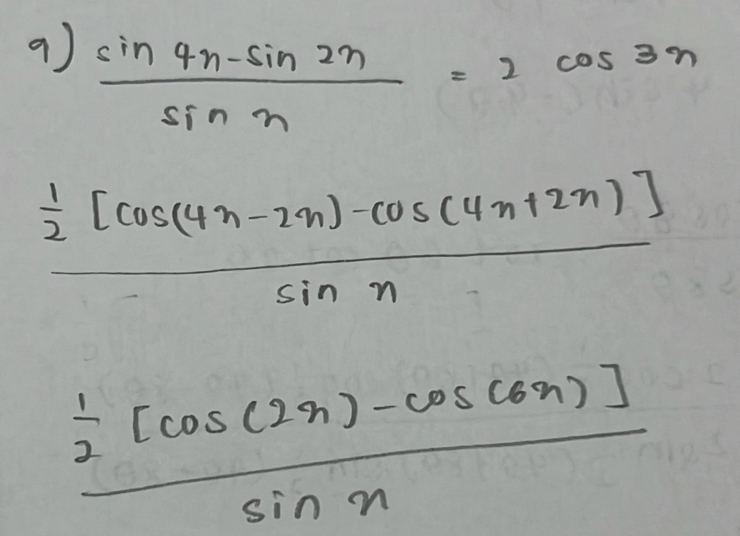 9) sin 4x - sin 2x / sin x = 2 cos 3x
1/2 [cos(4x - 2x) - cos(4x + 2x)] / sin x
1/2 [cos(2x) - cos(6x)] / sin x